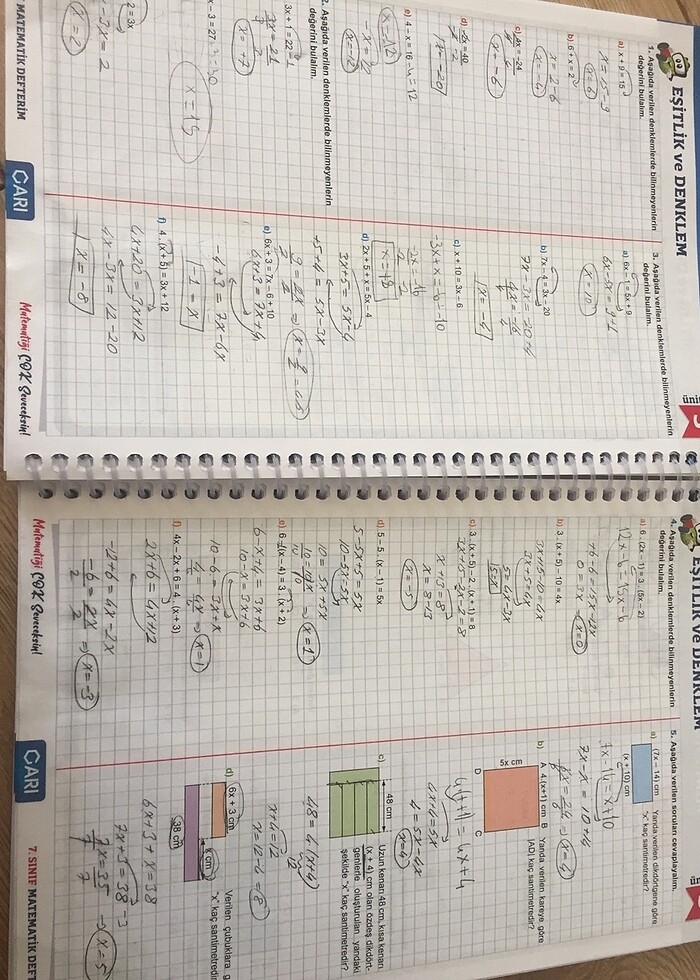 EŞİTLİK ve DENKLEM
1. Aşağıda verilen denklemlerde bilinmeyenlerin
değerini bulalım.
a) x + 9 = 15
x = 15 - 9
x = 6
b) 6 + x = 2
x = 2 - 6
x = -4
c) 4x = -24
x = -6
d) -2x = 40
x = -20
e) 4 - x = 16
-x = 12
x = -12
2. Aşağıda verilen denklemlerde bilinmeyenlerin
değerini bulalım.
3x + 1 = 22
3x = 21
x = 7
x - 3 = 27
x = 15
2 = 3x
x = 2
MATEMATİK DEFTERİM
ÇARI
3. Aşağıda verilen denklemlerde bilinmeyenlerin
değerini bulalım.
a) 6x - 1 = 5x + 9
6x - 5x = 9 + 1
x = 10
b) 7x - 4 = 3x - 20
7x - 3x = -20 + 4
4x = -16
x = -4
c) x + 10 = 3x - 6
-3x + x = -6 - 10
-2x = -16
d) 2x + 5 + x = 5x - 4
3x + 5 = 5x - 4
+5 + 4 = 5x - 3x
9 = 2x ⇒ x = 9/2 = 4,5
e) 6x + 3 = 7x - 6 + 10
6x + 3 = 7x + 4
-4 + 3 = 7x - 6x
-1 = x
f) 4 . (x + 5) = 3x + 12
4x + 20 = 3x + 12
4x - 3x = 12 - 20
x = -8
Matematiği ÇOK Seveceksin!
EŞİTLİK ve DENKLEM
4. Aşağıda verilen denklemlerde bilinmeyenlerin
değerini bulalım.
a) 6 . (2x - 1) = 3 . (5x - 2)
12x - 6 = 15x - 6
+6 - 6 = 15x - 12x
0 = 3x ⇒ x = 0
b) 3 . (x + 5) - 10 = 4x
3x + 15 - 10 = 4x
3x + 5 = 4x
5 = 4x - 3x
5 = x
c) 3 . (x + 5) - 2 . (x + 1) = 8
3x + 15 - 2x - 2 = 8
x + 13 = 8
x = 8 - 13
x = -5
d) 5 - 5 . (x - 1) = 5x
5 - 5x + 5 = 5x
10 - 5x = 5x
10 = 5x + 5x
10 = 10x ⇒ x = 1
e) 6 - (x - 4) = 3 . (x + 2)
6 - x + 4 = 3x + 6
10 - x = 3x + 6
10 - 6 = 3x + x
4 = 4x ⇒ x = 1
f) 4x - 2x + 6 = 4 . (x + 3)
2x + 6 = 4x + 12
-12 + 6 = 4x - 2x
-6 = 2x ⇒ x = -3
Matematiği ÇOK Seveceksin!
5. Aşağıda verilen soruları cevaplayalım.
a) (7x - 14) cm
(x + 10) cm
Yanda verilen dikdörtgene göre
"x" kaç santimetredir?
7x - 14 = x + 10
7x - x = 10 + 14
6x = 24 ⇒ x = 4
b) A 4.(x+1) cm B
5x cm
D C
Yanda verilen kareye göre
|AD| kaç santimetredir?
4(x+1) = 4x + 4
4x + 4 = 5x
4 = 5x - 4x
x = 4
c) 48 cm
Uzun kenarı 48 cm, kısa kenarı
(x + 4) cm olan özdeş dikdört-
genlerle oluşturulan yandaki
şekilde "x" kaç santimetredir?
48 = 4 (x+4)
12
x + 4 = 12
x = 12 - 4 = 8
d) 6x + 3 cm
x cm
38 cm
Verilen çubuklara
"x" kaç santimetredir?
6x + 3 + x = 38
7x + 3 = 38 - 3
7x = 35 ⇒ x = 5
ÇARI
7. SINIF MATEMATİK